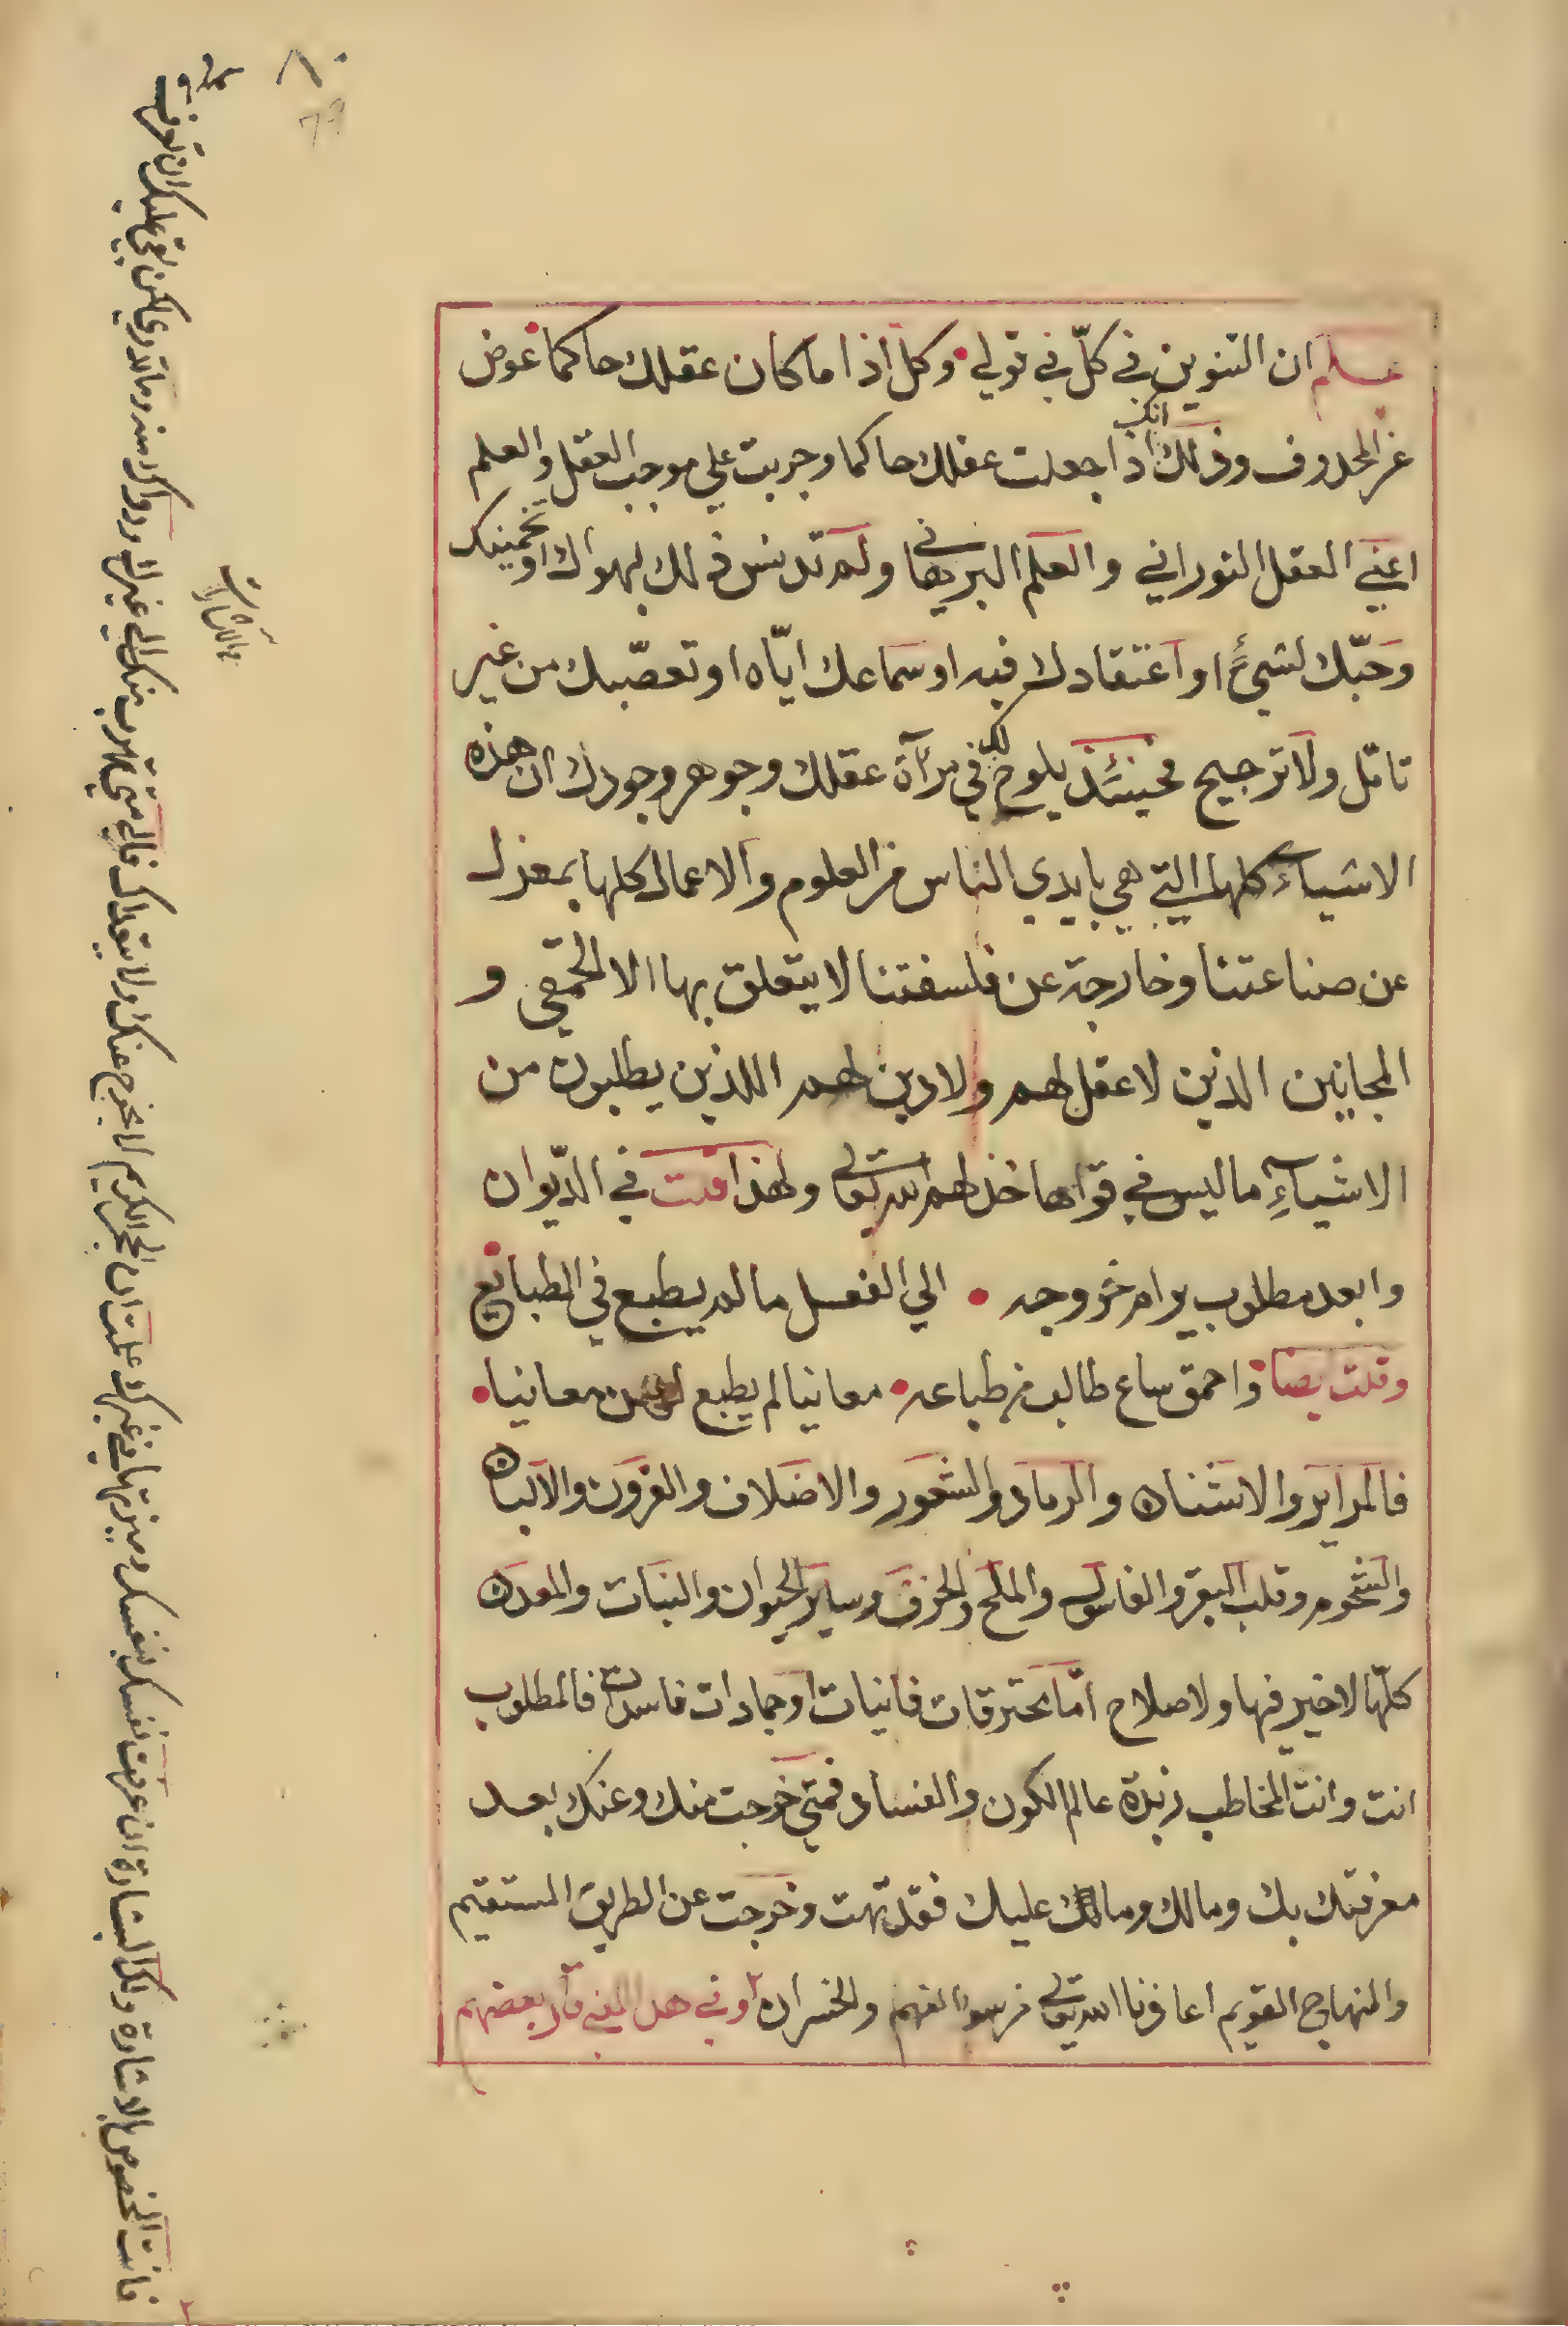 علم ان التنوين في كلّ في قولي وكل اذا ما كان عقلك حاكما عوض
عن المحذوف وذلك انك اذا جعلت عقلك حاكما وجريت علي موجب العقل والعلم
اعني العقل النوراني والعلم البرهاني ولم تدنس ذلك بهواك او تخمينك
وحبّك لشيءٍ او اعتقادك فيه او سماعك ايّاه او تعصّبك من غير
تامّل ولا ترجيح فحينئذ يلوح لك في مرآة عقلك وجوهر وجودك ان هذه
الاشياء كلها التي هي بايدي الناس من العلوم والاعمال كلها بمعزل
عن صناعتنا وخارجة عن فلسفتنا لا يتعلق بها الا الحمقي و
المجانين الذين لا عقل لهم ولا دين لهم اللذين يطلبون من
الاشياءِ ما ليس في قواها خذلهم الله تعالى ولهذا قلت في الدّيوان
وابعد مطلوب يرام خروجه الي الفعل ما لم يطبع في الطبائع
وقلت ايضا واحمق ساع طالب من طباعه معانيا لم يطبع لهن معانيا
فالمراير والاشنان والرماد والشعور والاضلاف والقرون والالبان
والشحوم وقلب البقر والغاسول والملح والخزف وساير الحيوان والنبات والمعدن
كلّها لا خير فيها ولا صلاح امّا محترقات فانيات او جمادات فاسدات فالمطلوب
انت وانت المخاطب زبدة عالم الكون والفساد فمتي خرجت منك وعنك بعد
معرفتك بك ومالك ومالك عليك فقد تهت وخرجت عن الطريق المستقيم
والمنهاج القويم اعاذنا الله تعالى من سوء الفهم والخسران وفي هذا المعني قال بعضهم
٨٠
79
فانت المخصوص بالاشارة ولك البشارة ان عرفت نفسك بنفسك وميزتها من غيرك علمت ان الحجر الكريم لا يخرج عنك ولا يتعداك فالي متي تهرب منك الي غيرك